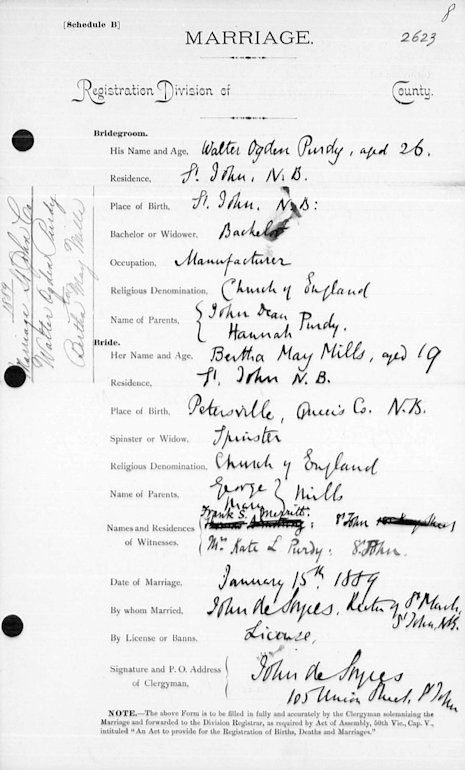 8
[Schedule B]
MARRIAGE.
2623
Registration Division of County.
Bridegroom.
His Name and Age, Walter Ogden Purdy, aged 26.
Residence, St. John, N.B.
Place of Birth, St. John, N.B:
Bachelor or Widower, Bachelor
Occupation, Manufacturer
Religious Denomination, Church of England
Name of Parents, { John Dean Purdy.
Hannah
Bride.
Her Name and Age, Bertha May Mills, aged 19
Residence, St. John N.B.
Place of Birth, Petersville, Queen's Co. N.B.
Spinster or Widow, Spinster
Religious Denomination, Church of England
Name of Parents, George } Mills
Mary
Frank S. Merritt:
Names and Residences St John
of Witnesses. Mrs Kate L Purdy: St John.
Date of Marriage. January 15th. 1889
By whom Married, John de Soyres, Rector of St Mark,
St John, N.B.
By License or Banns. License,
Signature and P.O. Address John de Soyres
of Clergyman, 105 Union Street, St John
NOTE.—The above Form is to be filled in fully and accurately by the Clergyman solemnizing the
Marriage and forwarded to the Division Registrar, as required by Act of Assembly, 50th Vic., Cap. V.,
intituled "An Act to provide for the Registration of Births, Deaths and Marriages."
1889
Marriage St John Co
Walter Ogden Purdy
to
Bertha May Mills